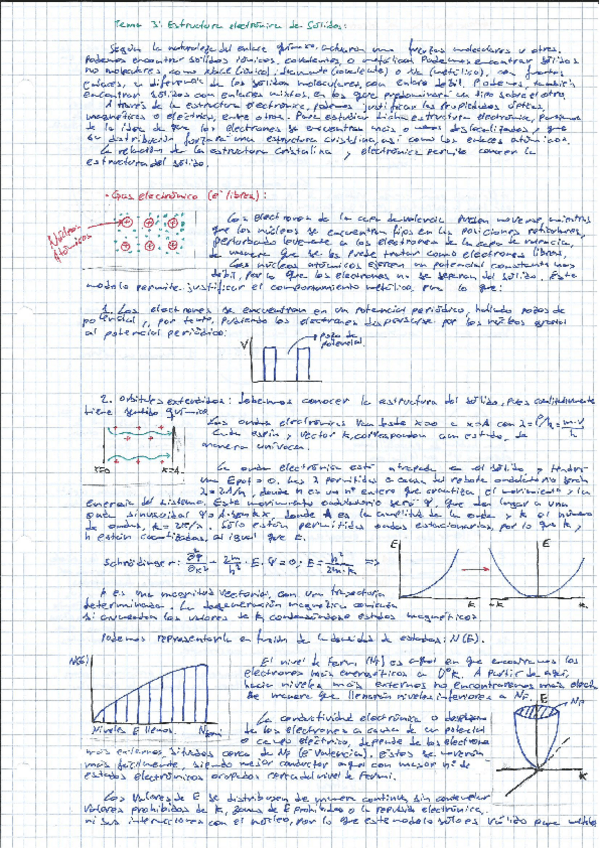 Tema 3: Estructura electrónica de Sólidos:
Según la naturaleza del enlace químico, actuaran una fuerzas moleculares u otras.
Podemos encontrar sólidos iónicos, covalentes, o metálicos. Podemos encontrar sólidos
no moleculares, como (iónico), diamante (covalente) o (metálico), con fuertes
enlaces, a diferencia de los sólidos moleculares, con enlace débil. Podemos, también
encontrar sólidos con enlaces mixtos, en los que predominará un tipo sobre el otro.
A través de la estructura electrónica, podemos justificar las propiedades ópticas,
magnéticas o eléctricas, entre otras. Para estudiar dicha estructura electrónica, partimos
de la idea de que los electrones se encuentran más o menos deslocalizados, y que
su distribución forzará una estructura cristalina, así como los enlaces atómicos.
La relación de la estructura cristalina y electrónica permite conocer la
estructura del sólido.
- Gas electrónico (e⁻ libres):
Núcleos
Atómicos
Los electrones de la capa de valencia pueden moverse, mientras
que los núcleos se encuentran fijos en las posiciones reticulares,
perturbando levemente a los electrones de la capa de valencia,
de manera que se les puede tratar como electrones libres.
Los núcleos atómicos ejercen un potencial constante muy
débil, por lo que los electrones no se separan del sólido. Este
modelo permite justificar el comportamiento metálico, por lo que:
1. Los electrones se encuentran en un potencial periódico, hallando pozos de
potencial y, por tanto, pudiendo los electrones dispersarse por los núcleos
al potencial periódico:
V
pozo de
potencial
2. orbitales extendidos: debemos conocer la estructura del sólido, pues cualitativamente
tiene sentido químico.
x=0
x=A
Las ondas electrónicas van desde x=0 a x=A con
Cada espín y vector k, corresponden a un estado, de
manera unívoca.
La onda electrónica está atrapada en el sólido, y tendrá
una Epot = 0. Las λ permitidas a causa del rebote ondulatorio serán
λ=2A/n, donde n es un nº entero que cuantiza el movimiento y la
energía del sistema. Este movimiento ondulatorio será Ψ, que da lugar a una
onda sinusoidal Ψ=A·sen kx, donde A es la amplitud de la onda y k el número
de ondas, k=2π/λ. Sólo están permitidas ondas estacionarias, por lo que k y
n están cuantizadas, al igual que E.
Schrödinger:
E
k
E
-k
k
k es una magnitud vectorial, con una trayectoria
determinada. La degeneración magnética
si aumentan los valores de k, estados magnéticos
Podemos representarla en función de la densidad de estados: N(E).
N(E)
Niveles E llenos.
El nivel de Fermi (NF) es aquel en que encontramos los
electrones más energéticos a 0°K. A partir de aquí,
hacia niveles más externos no encontraremos más
de manera que llenarán niveles inferiores a NF.
La conductividad electrónica o desplaza
de los electrones a causa de un potencial
o campo eléctrico, depende de los electrones
más externos, situados cerca de NF (e⁻ valencia). Estos se moverán
más fácilmente, siendo mejor conductor aquel con mayor nº de
estados electrónicos ocupados cerca del nivel de Fermi.
E
NF
k
Los valores de E se distribuyen de manera continua, sin contemplar
valores prohibidos de k, zonas de E prohibidas o la repulsión electrónica,
ni sus interacciones con el núcleo, por lo que este modelo sólo es válido para